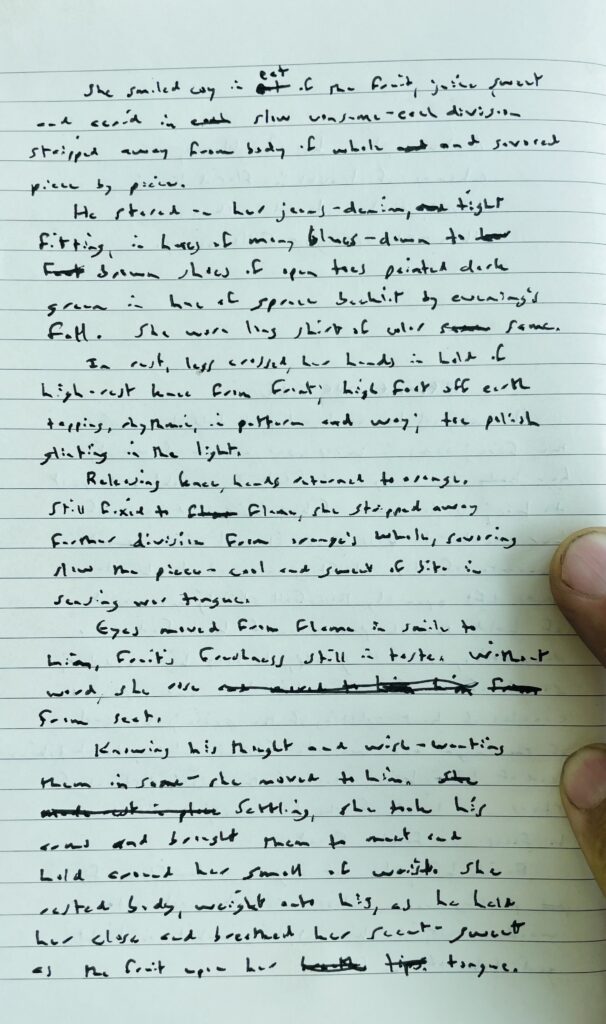 She smiled coy in eat of the fruit, juice sweet
and acrid in each slow consume-each division
stripped away from body of whole and and savored
piece by piece.
He stared - her jeans-denim, and tight
fitting, in hues of many blues-down to her
foot brown shoes of open toes painted dark
green in hue of spruce bechilt by evening's
fall. She wore long shirt of color same same.
In rest, legs crossed, her hands in hold of
high-rest knee from front; high foot off earth
tapping, rhythmic, in pattern and way; toe polish
glinting in the light.
Releasing knee, hands returned to orange.
Still fixed to flame, she stripped away
further division from orange's whole, savoring
slow the piece-cool and sweet of bite in
sensing wet tongue.
Eyes moved from flame in smile to
him, fruit's freshness still in taste. Without
word, she rose and moved to him from
from seat.
Knowing his thought and wish-wanting
them in same-she moved to him. She
Settling, she took his
arms and brought them to meet and
hold around her small of waist. She
rested body, weight onto his, as he held
her close and breathed her scent-sweet
as the fruit upon her tips tongue.